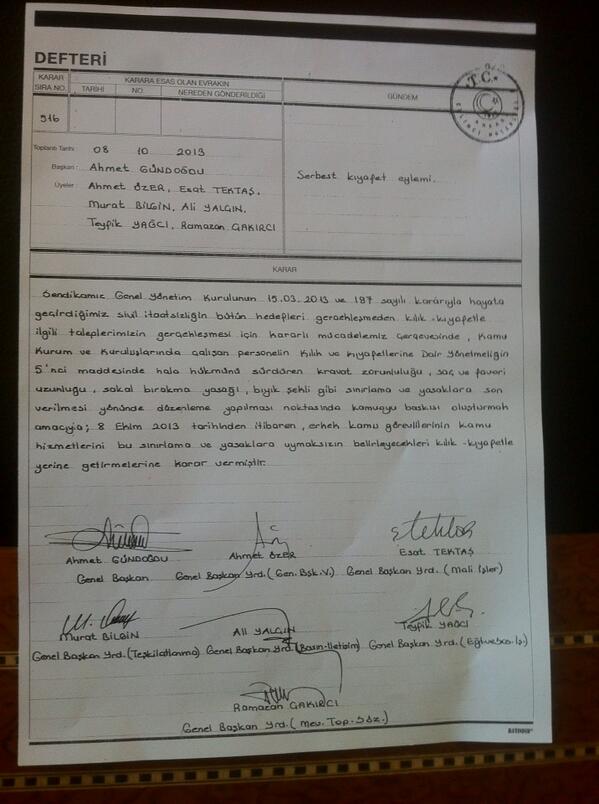 DEFTERİ
KARAR SIRA NO.
KARARA ESAS OLAN EVRAKIN
TARİHİ NO. NEREDEN GÖNDERİLDİĞİ
GÜNDEM
T.C.
516
Toplantı Tarihi 08 10 2013
Başkan : Ahmet GÜNDOĞDU
Üyeler : Ahmet ÖZER, Esat TEKTAŞ,
Murat BİLGİN, Ali YALÇIN,
Teyfik YAĞCI, Ramazan ÇAKIRCI
Serbest kıyafet eylemi.
KARAR
Sendikamız Genel Yönetim Kurulunun 15.03.2013 ve 187 sayılı kararıyla hayata
geçirdiğimiz sivil itaatsizliğin bütün hedefleri gerçekleşmeden kılık-kıyafetle
ilgili taleplerimizin gerçekleşmesi için kararlı mücadelemiz çerçevesinde, Kamu
Kurum ve Kuruluşlarında çalışan personelin Kılık ve Kıyafetlerine Dair Yönetmeliğin
5'nci maddesinde hala hükmünü sürdüren kravat zorunluluğu, saç ve favori
uzunluğu, sakal bırakma yasağı, bıyık şekli gibi sınırlama ve yasaklara son
verilmesi yönünde düzenleme yapılması noktasında kamuoyu baskısı oluşturmak
amacıyla; 8 Ekim 2013 tarihinden itibaren, erkek kamu görevlilerinin kamu
hizmetlerini bu sınırlama ve yasaklara uymaksızın belirleyecekleri kılık-kıyafetle
yerine getirmelerine karar vermiştir.
Ahmet GÜNDOĞDU Ahmet ÖZER Esat TEKTAŞ
Genel Başkan Genel Başkan Yrd.(Gen.Bşk.V.) Genel Başkan Yrd.(Mali İşler)
Murat BİLGİN Ali YALÇIN Teyfik YAĞCI
Genel Başkan Yrd.(Teşkilatlanma) Genel Başkan Yrd.(Basın-İletişim) Genel Başkan Yrd.(Eğt.ve Sos.İş.)
Ramazan ÇAKIRCI
Genel Başkan Yrd.(Mev.Top.Söz.)